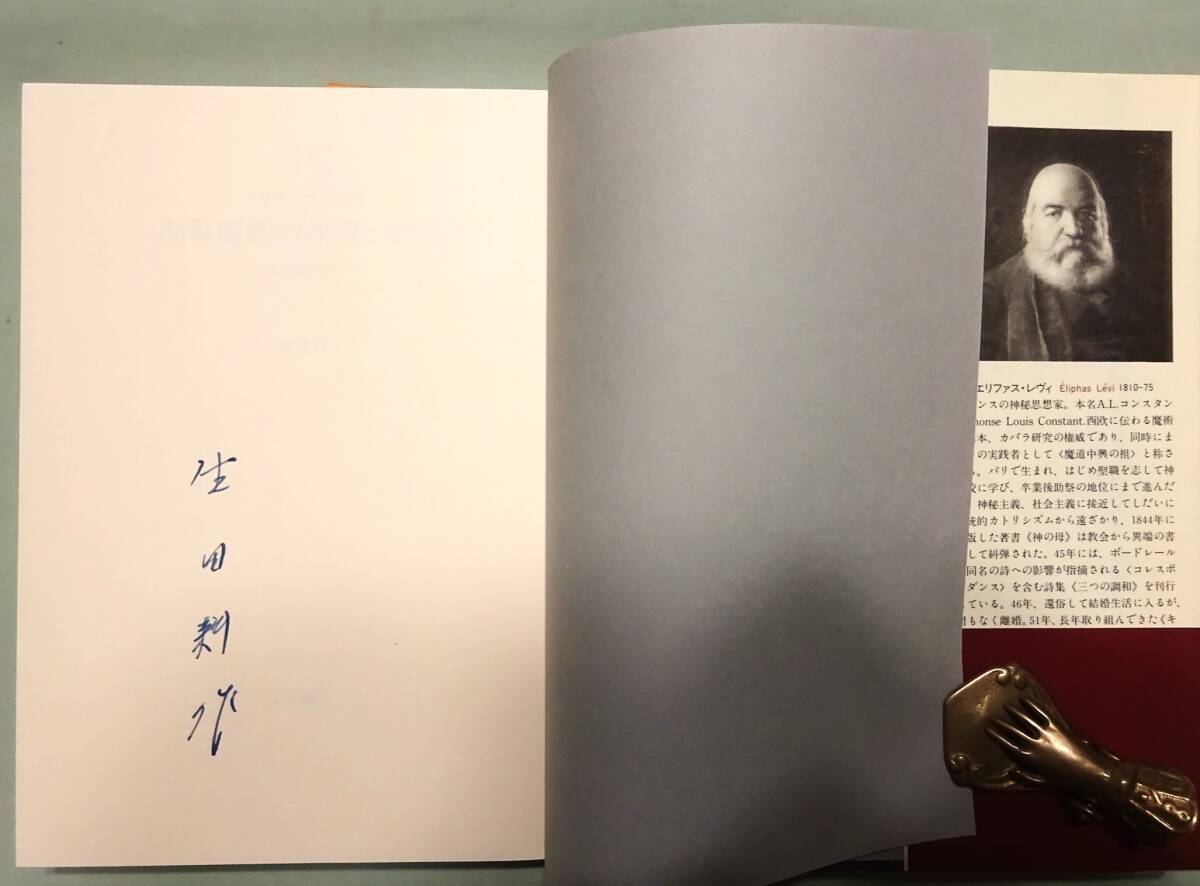 生田耕作
エリファス・レヴィ Éliphas Lévi 1810-75
ンスの神秘思想家。本名A.L.コンスタン
honse Louis Constant.西欧に伝わる魔術
本、カバラ研究の権威であり、同時にま
の実践者として〈魔道中興の祖〉と称さ
。パリで生まれ、はじめ聖職を志して神
校に学び、卒業後助祭の地位にまで進んだ
神秘主義、社会主義に接近してしだいに
統的カトリシズムから遠ざかり、1844年に
版した著書《神の母》は教会から異端の書
して糾弾された。45年には、ボードレール
同名の詩への影響が指摘される〈コレスポ
ダンス〉を含む詩集《三つの調和》を刊行
ている。46年、還俗して結婚生活に入るが、
もなく離婚。51年、長年取り組んできた《キ